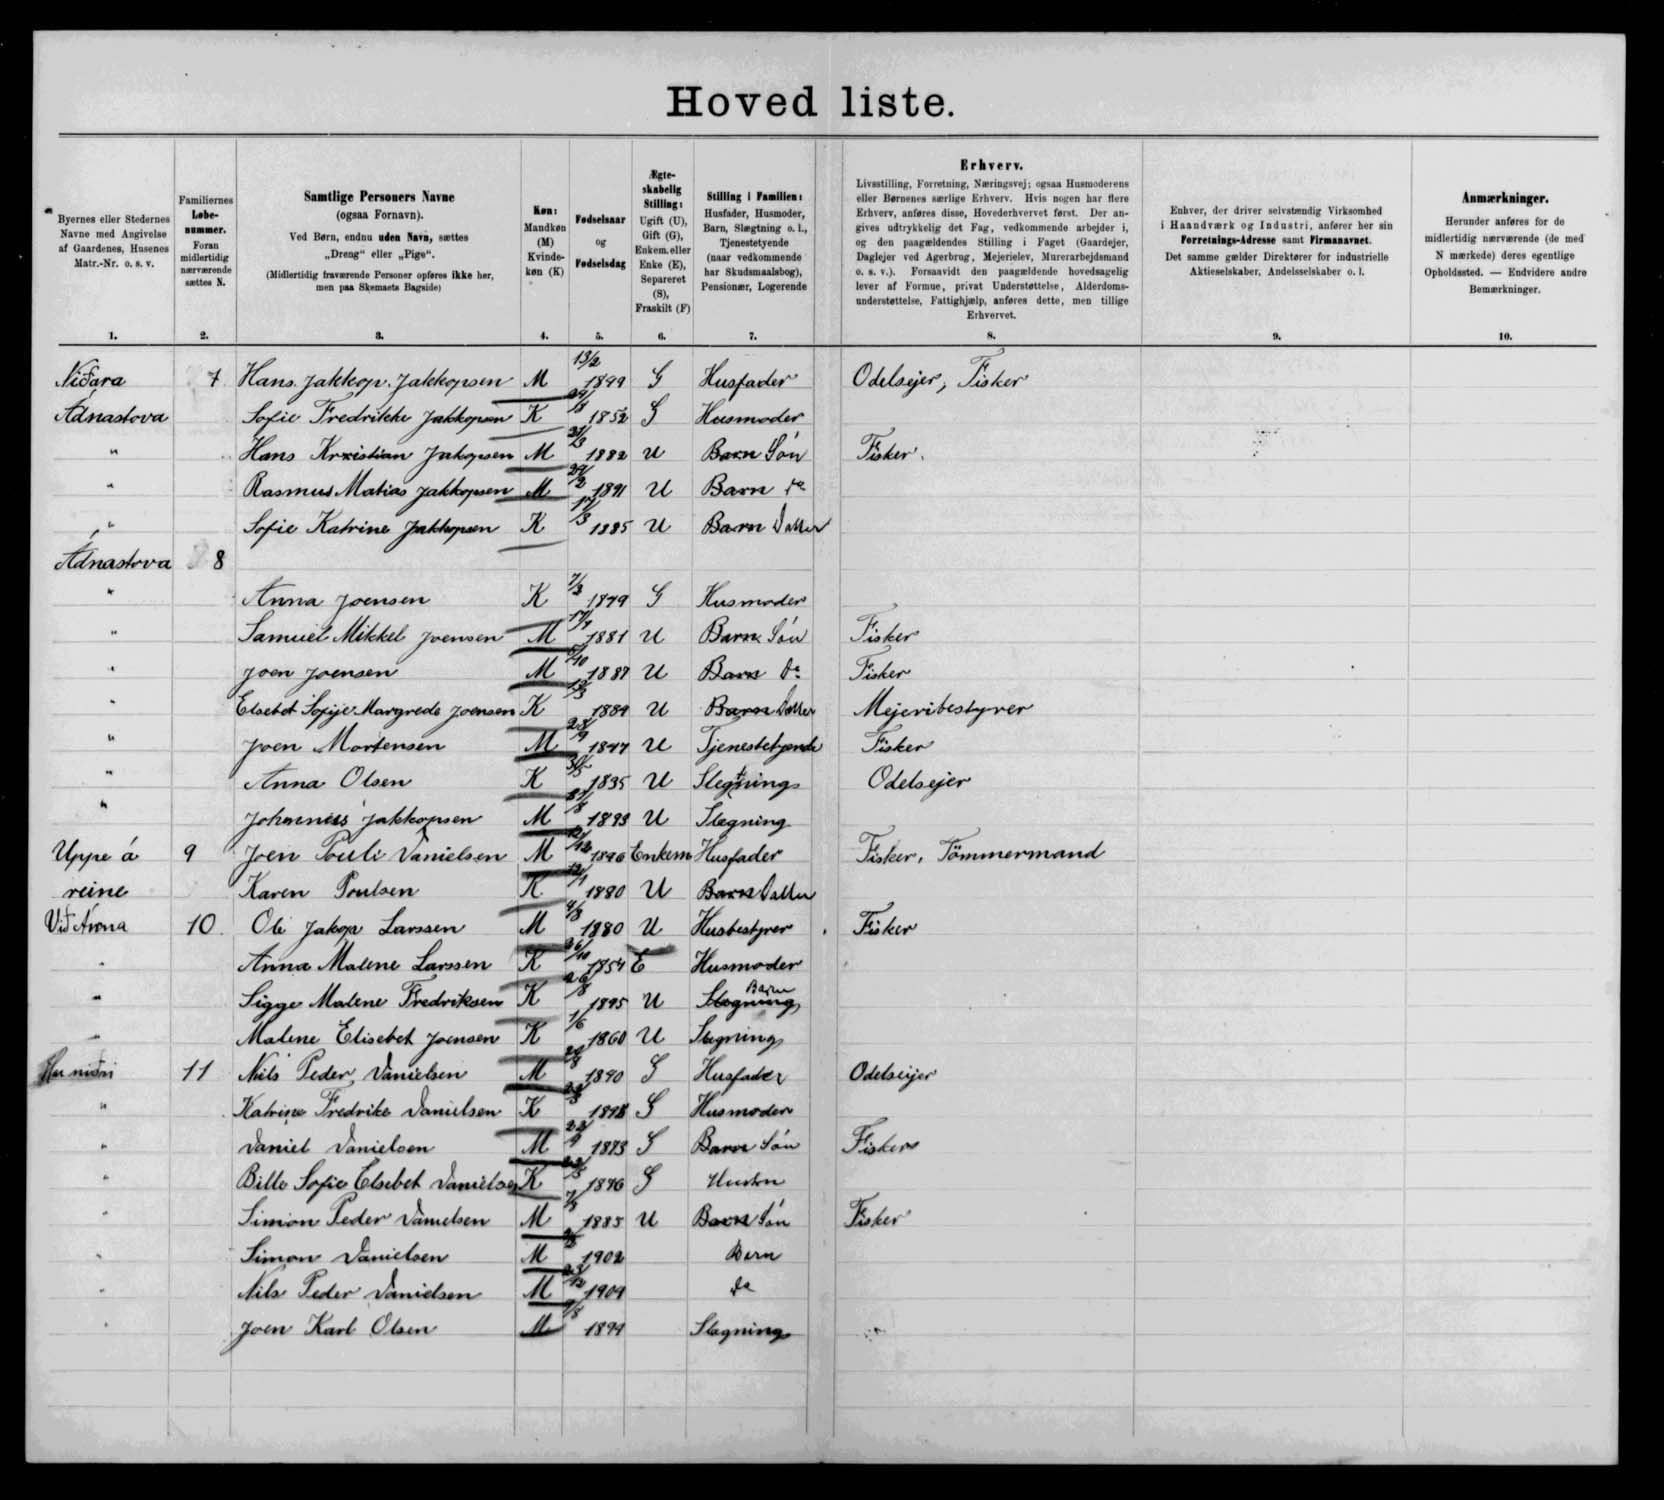 Hovedliste.
Byernes eller Stedernes Navne med Angivelse af Gaardenes, Husenes Matr.-Nr. o. s. v.
Familiernes Løbenummer. Foran midlertidig nærværende sættes N.
Samtlige Personers Navne (ogsaa Fornavn). Ved Børn, endnu uden Navn, sættes „Dreng“ eller „Pige“. (Midlertidig fraværende Personer opføres ikke her, men paa Skemaets Bagside)
Køn: Mandkøn (M) Kvindekøn (K)
Fødselsaar og Fødselsdag
Ægteskabelig Stilling: Ugift (U), Gift (G), Enkem. eller Enke (E), Separeret (S), Fraskilt (F)
Stilling i Familien: Husfader, Husmoder, Barn, Slægtning o. l., Tjenestetyende (naar vedkommende har Skudsmaalsbog), Pensionær, Logerende
Erhverv.
Livsstilling, Forretning, Næringsvej; ogsaa Husmoderens eller Børnenes særlige Erhverv. Hvis nogen har flere Erhverv, anføres disse, Hovederhvervet først. Der angives udtrykkelig det Fag, vedkommende arbejder i, og den paagældendes Stilling i Faget (Gaardejer, Daglejer ved Agerbrug, Mejerielev, Murerarbejdsmand o. s. v.). Forsaavidt den paagældende hovedsagelig lever af Formue, privat Understøttelse, Alderdomsunderstøttelse, Fattighjælp, anføres dette, men tillige Erhvervet.
Enhver, der driver selvstændig Virksomhed i Haandværk og Industri, anfører her sin Forretnings-Adresse samt Firmanavnet. Det samme gælder Direktører for industrielle Aktieselskaber, Andelsselskaber o. l.
Anmærkninger.
Herunder anføres for de midlertidig nærværende (de med N mærkede) deres egentlige Opholdssted. — Endvidere andre Bemærkninger.
1. 2. 3. 4. 5. 6. 7. 8. 9. 10.
Niðara 7 Hans Jakkop Jakkopsen M 13/2 G Husfader Odelsejer, Fisker
Ádnastova Sofie Fredrikke Jakkopsen K 1852 G Husmoder
" Hans Kristian Jakopsen M 1882 U Barn Søn Fisker
" Rasmus Matias Jakkopsen M 1891 U Barn do
" Sofie Katrine Jakkopsen K 1885 U Barn Datter
Ádnastova 8
" Anna Joensen K G Husmoder
" Samuel Mikkel Joensen M 1881 U Barn Søn Fisker
" Joen Joensen M U Barn do Fisker
" Elsebet Sofije Margrede Joensen K 1889 U Barn Datter Mejeribestyrer
" Joen Mortensen M U Tjenestetyende Fisker
" Anna Olsen K 1835 U Slegtning Odelsejer
" Johannes Jakkopsen M 1893 U Slegning
Uppe á 9 Joen Pouli Danielsen M Enkem Husfader Fisker, Tömmermand
reine Karen Poulsen K 1880 U Barn Datter
Við Ánna 10 Ole Jakop Larssen M 1880 U Husbestyrer Fisker
" Anna Malene Larssen K 1854 E Husmoder
" Sigge Malene Fredriksen K 1895 U Slegning Barn
" Malene Elisebet Joensen K 1/6 1860 U Slegning
11 Nils Peder Danielsen M G Husfader Odelseijer
" Katrine Fredrike Danielsen K G Husmoder
" Daniel Danielsen M 1873 G Barn Søn Fisker
" Bille Sofie Elsebet Danielsen K 1876 G Hustru
" Simion Peder Danielsen M 1885 U Barn Søn Fisker
" Simon Danielsen M 1902 Barn
" Nils Peder Danielsen M 1904 do
" Joen Karl Olsen M Slegning